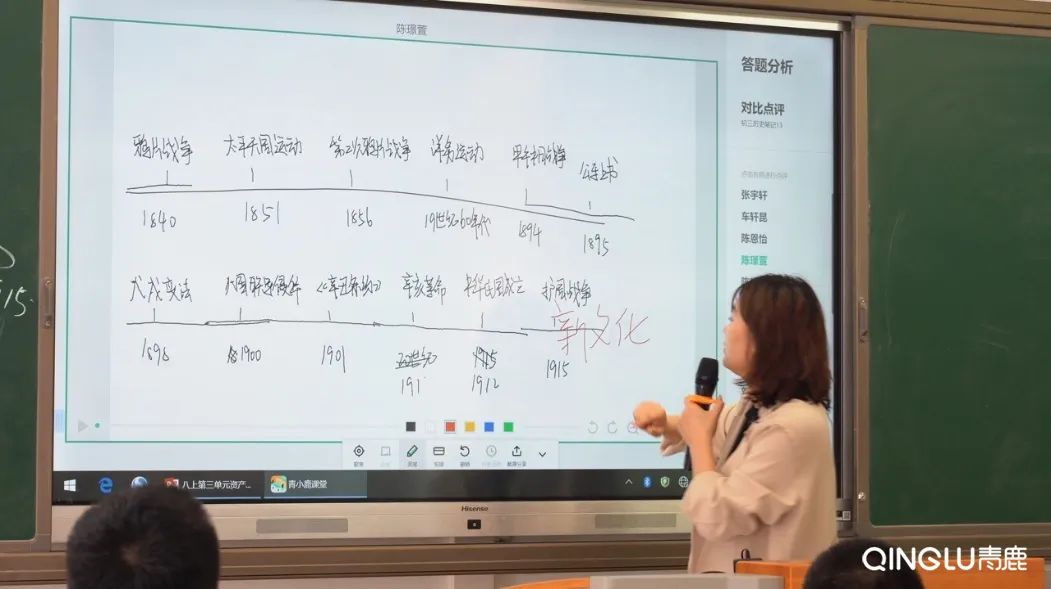 陈璟萱
答题分析
对比点评
初三历史笔记13
点击有同进行点评
张宇轩
车轩昆
陈恩怡
陈璟萱
鸦片战争 太平天国运动 第二次鸦片战争 洋务运动 甲午中日战争 公车上书
1840 1851 1856 19世纪60年代 1894 1895
戊戌变法 八国联军侵华 《辛丑条约》 辛亥革命 中华民国成立 护国战争
新文化
1898 1900 1901 20世纪 1915 1915
191 1912
八上第三单元资产...
青小鹿课堂
Hisense
QINGLU青鹿
15.